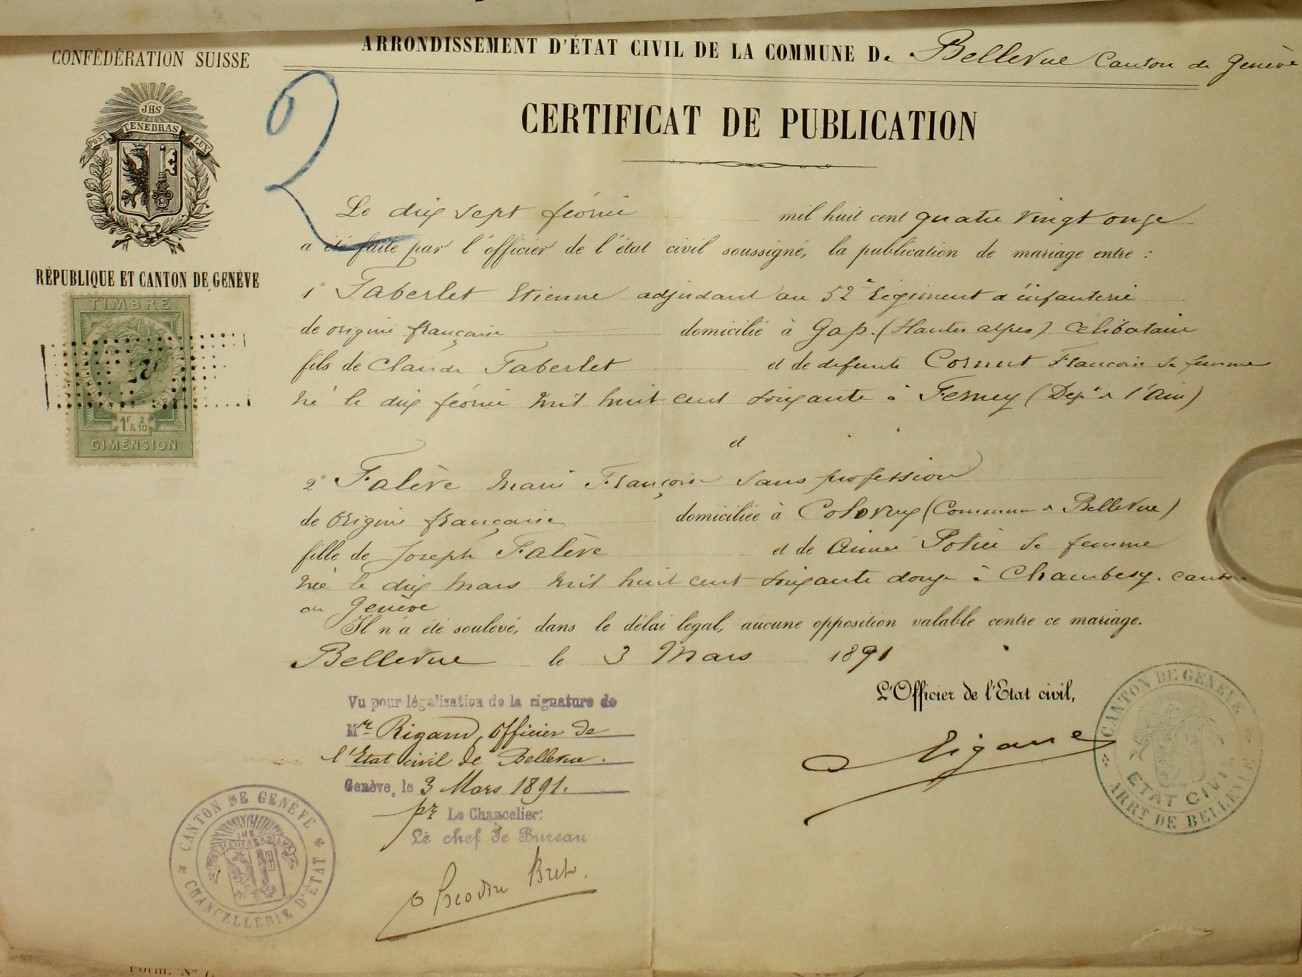 CONFÉDÉRATION SUISSE
JHS
POST TENEBRAS LUX
RÉPUBLIQUE ET CANTON DE GENÈVE
TIMBRE
1F. & 2/10
DIMENSION
ARRONDISSEMENT D'ÉTAT CIVIL DE LA COMMUNE De Bellevue Canton de Genève
2
CERTIFICAT DE PUBLICATION
Le dix sept février mil huit cent quatre vingt onze
a été faite par l'officier de l'état civil soussigné, la publication de mariage entre :
1° Taberlet Etienne adjudant au 52e Régiment d'infanterie
de origine française domicilié à Gap. (Hautes alpes) célibataire
fils de Claude Taberlet et de défunte Cornut Françoise sa femme
né le dix février mil huit cent soixante à Ferney (Dept de l'Ain)
et
2° Falève Marie Françoise sans profession
de origine française domiciliée à Colovrey (Commune de Bellevue)
fille de Joseph Falève et de Aimée sa femme
née le dix Mars mil huit cent soixante douze à Chambésy. canton
de Genève
Il n'a été soulevé, dans le délai légal, aucune opposition valable contre ce mariage.
Bellevue le 3 Mars 1891
L'Officier de l'Etat civil,
Rigaud
CANTON DE GENÈVE
ETAT CIVIL
ARRT DE BELLEVUE
Vu pour légalisation de la signature de
Mr. Rigaud, officier de
l'Etat civil de Bellevue.
Genève, le 3 Mars 1891.
pr Le Chancelier:
Le chef de Bureau
CANTON DE GENÈVE
CHANCELLERIE D'ÉTAT
Form. No 7.